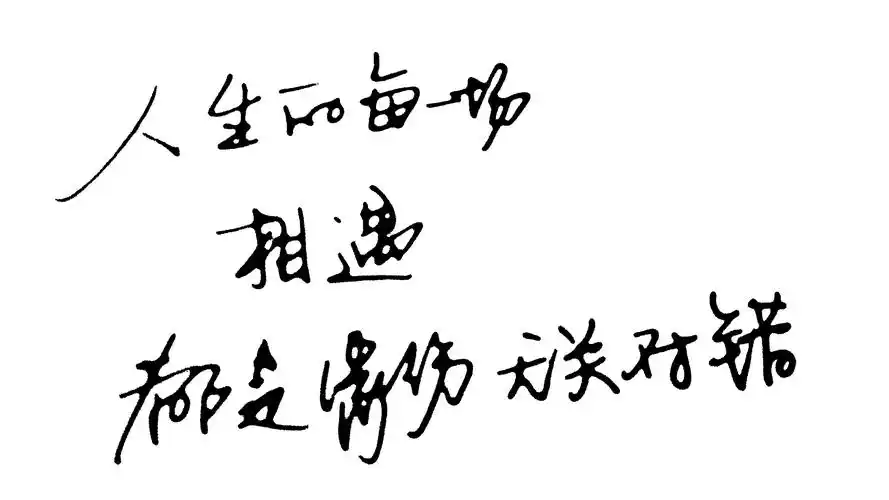 人生的每一场
相遇
都是缘份 无关对错